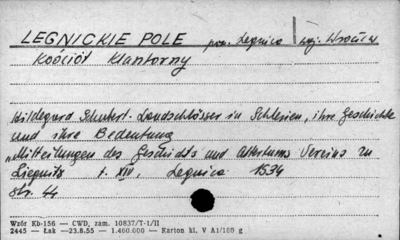 LEGNICKIE POLE pow. Legnica woj. Wrocław
Kościół Klasztorny
Hildegard Schubert: Landschlösser in Schlesien, ihre Geschichte
und ihre Bedeutung
"Mitteilungen des Geschichts und Altertums Vereins zu
Liegnitz t. XIV, Legnica 1534
str. 44
Wzór Kb-156 — CWD, zam. 10837/T-1/II
2445 — Łak —23.8.55 — 1.400.000 — Karton kl. V A1/180 g